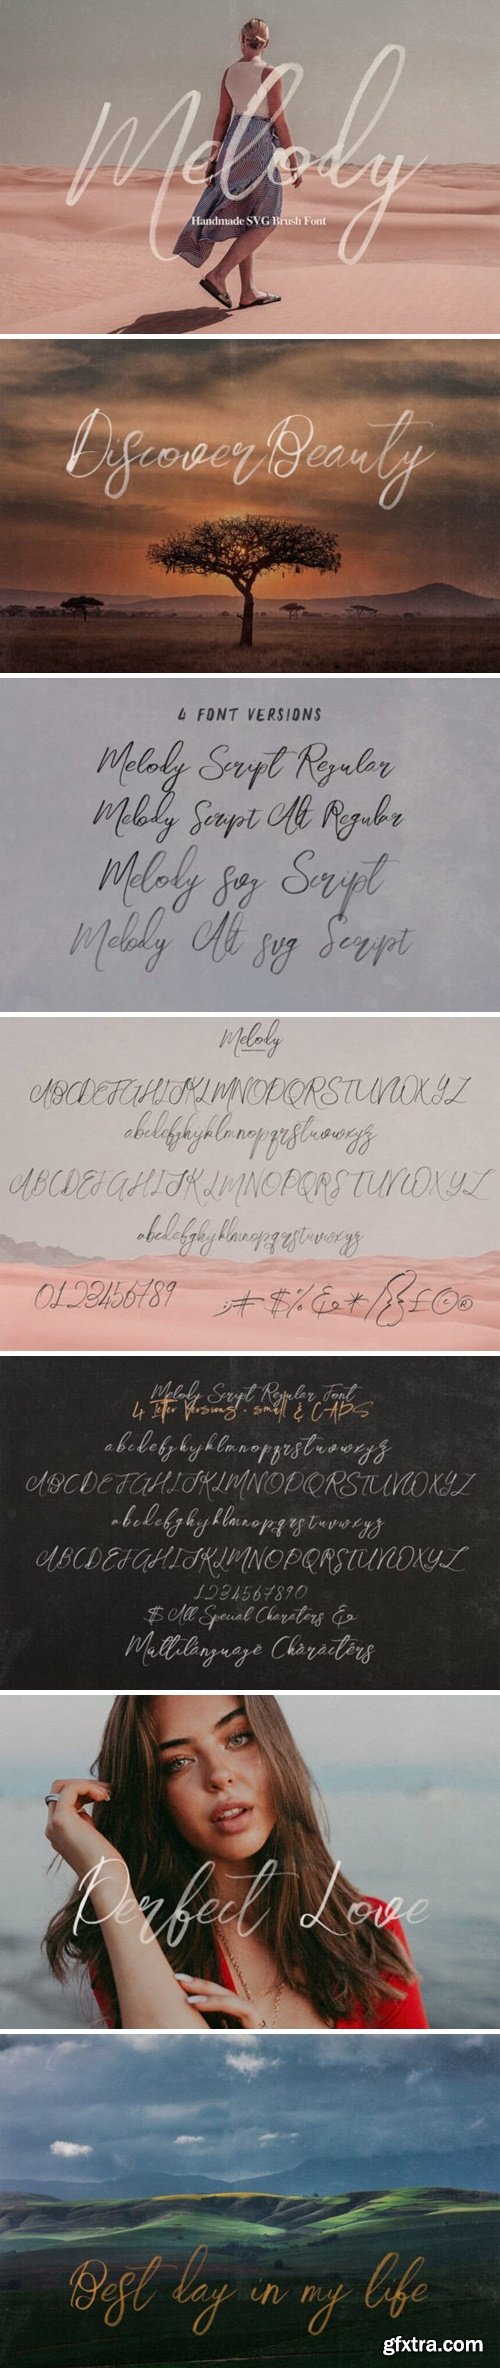 Melody
Handmade SVG Brush Font
Discover Beauty
4 FONT VERSIONS
Melody Script Regular
Melody Script Alt Regular
Melody svg Script
Melody Alt svg Script
Melody
ABCDEFGHIJKLMNOPQRSTUVWXYZ
abcdefghyklmnopqrstuvwxyz
ABCDEFGHIJKLMNOPQRSTUVWXYZ
abcdefghyklmnopqrstuvwxyz
0123456789 :;# $%&*/{}£©®
Melody Script Regular Font
4 letter Versions - small & CAPS
abcdefghyklmnopqrstuvwxyz
ABCDEFGHIJKLMNOPQRSTUVWXYZ
abcdefghyklmnopqrstuvwxyz
ABCDEFGHIJKLMNOPQRSTUVWXYZ
1234567890
$ All Special Charaters &
Multilanguage Characters
Perfect Love
Best day in my life
gfxtra.com